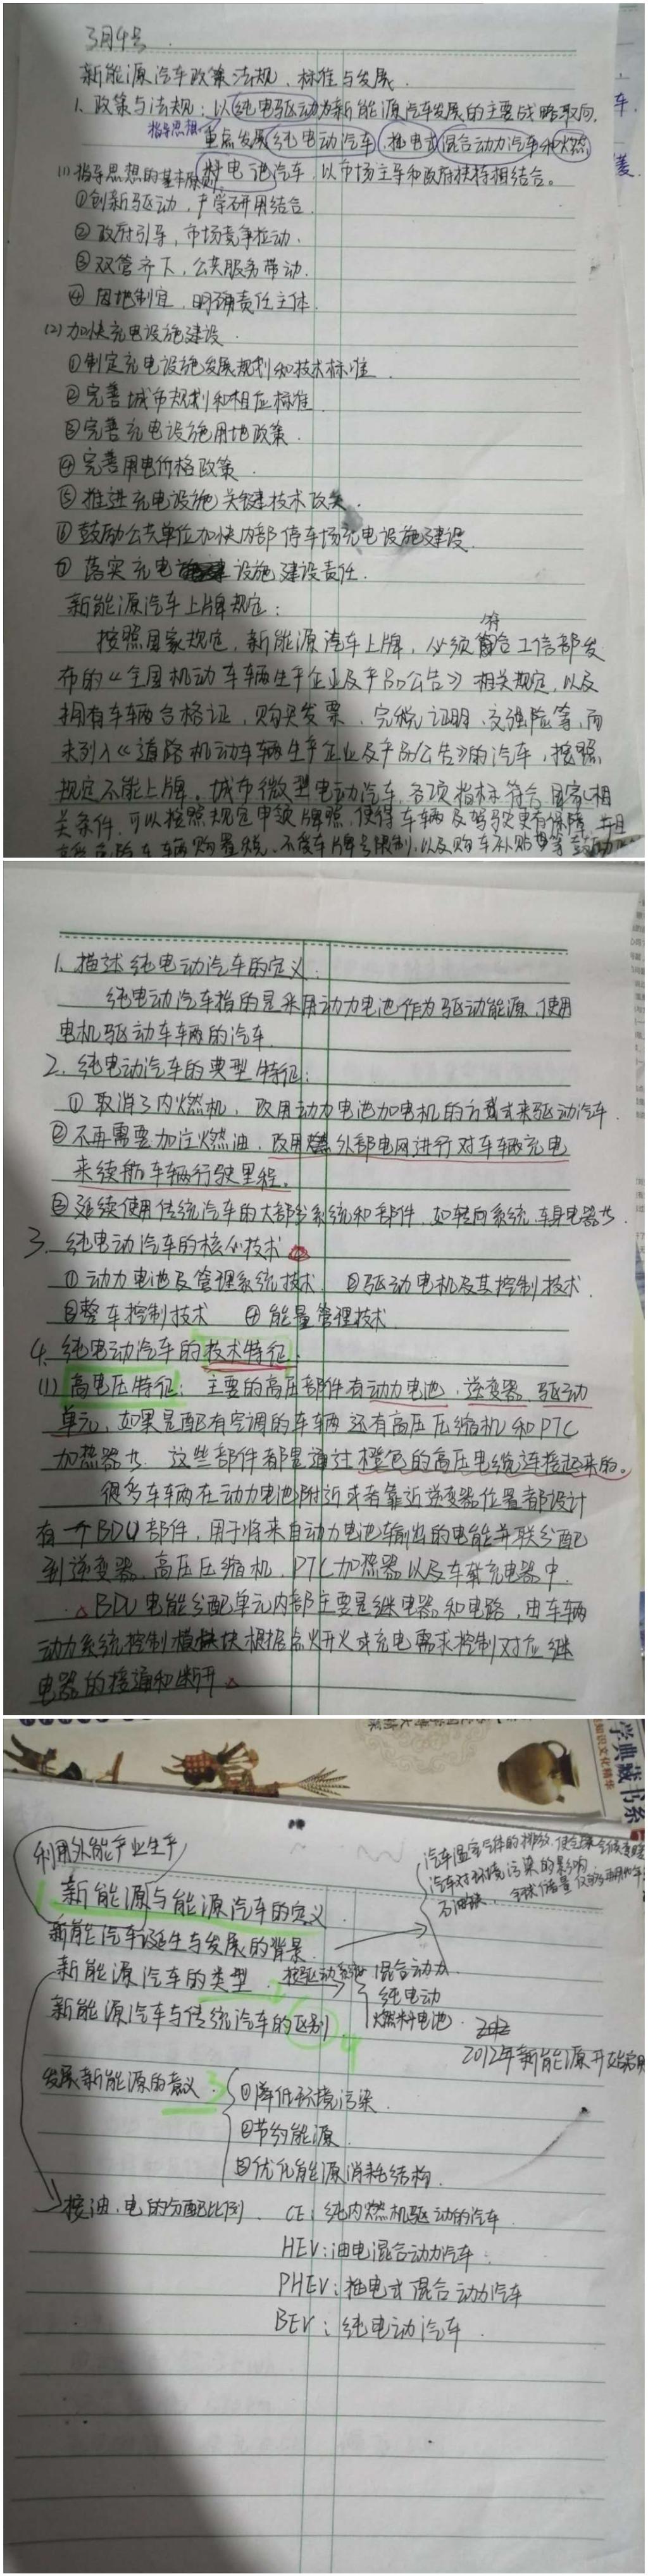 3月4号
新能源汽车政策法规、标准与发展
1、政策与法规：以纯电驱动为新能源汽车发展的主要战略取向，
指导思想
重点发展纯电动汽车、插电式混合动力汽车和燃
料电池汽车，以市场主导和政府扶持相结合。
(1)指导思想的基本原则
①创新驱动，产学研用结合
②政府引导，市场竞争拉动.
③双管齐下，公共服务带动.
④因地制宜，明确责任主体.
(2)加快充电设施建设.
①制定充电设施发展规划和技术标准
②完善城市规划和相应标准
③完善充电设施用地政策.
④完善用电价格政策.
⑤推进充电设施关键技术攻关.
⑥鼓励公共单位加快内部停车场充电设施建设
⑦落实充电设施建设责任.
新能源汽车上牌规定：
按照国家规定，新能源汽车上牌，必须符合工信部发
布的《全国机动车辆生产企业及产品公告》相关规定，以及
拥有车辆合格证，购买发票、完税证明、交强险等，而
未列入《道路机动车辆生产企业及产品公告》的汽车，按照
规定不能上牌。城市微型电动汽车，各项指标符合国家相
关条件，可以按照规定申领牌照，使得车辆及驾驶更有保障，并且
车辆购置税、不受车牌号限制，以及购车补贴等鼓励
1、描述纯电动汽车的定义：
纯电动汽车指的是采用动力电池作为驱动能源，使用
电机驱动车辆的汽车.
2、纯电动汽车的典型特征：
①取消了内燃机，改用动力电池加电机的方式来驱动汽车.
②不再需要加注燃油，改用外部电网进行对车辆充电
来续航车辆行驶里程。
③延续使用传统汽车的大部分系统和部件，如转向系统、车身电器等.
3、纯电动汽车的核心技术
①动力电池及管理系统技术 ②驱动电机及其控制技术.
③整车控制技术 ④能量管理技术.
4、纯电动汽车的技术特征：
(1)高电压特征：主要的高压部件有动力电池、逆变器、驱动
单元，如果是配有空调的车辆还有高压压缩机和PTC
加热器等. 这些部件都是通过橙色的高压电缆连接起来的。
很多车辆在动力电池附近或者靠近逆变器位置都设计
有一个BDU部件，用于将来自动力电池输出的电能并联分配
到逆变器、高压压缩机、PTC加热器以及车载充电器中.
BDU电能分配单元内部主要是继电器和电路，由车辆
动力系统控制模块根据点火开关或充电需求控制对应继
电器的接通和断开
学典藏书系
利用外能产业生产
汽车温室气体的排放，使全球气候变暖
汽车对环境污染的影响
石油缺、全球储量
1 新能源与能源汽车的定义
新能汽车诞生与发展的背景.
新能源汽车的类型. 2 按驱动系统 混合动力.
纯电动
燃料电池.
新能源汽车与传统汽车的区别 4
2012年新能源开始
发展新能源的意义. 3 ①降低环境污染.
②节约能源.
③优化能源消耗结构.
按油、电的分配比例. CE：纯内燃机驱动的汽车
HEV：油电混合动力汽车.
PHEV：插电式混合动力汽车
BEV：纯电动汽车.